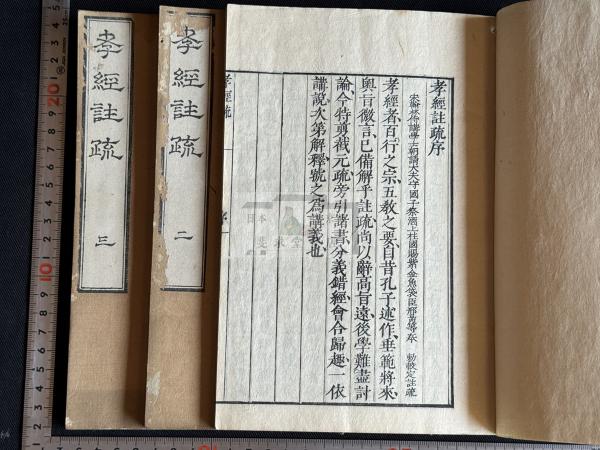 孝經註疏序
宋翰林侍講學士朝請大夫守國子祭酒上柱國賜紫金魚袋臣邢昺等奉 勅校定註疏
孝經者百行之宗五教之要自昔孔子述作垂範將來
奧旨微言已備解乎註疏尚以辭高旨遠後學難盡討
論今特剪截元疏旁引諸書分義錯經會合歸趣一依
講說次第解釋號之爲講義也
孝經疏 序
孝經註疏 二
孝經註疏 三